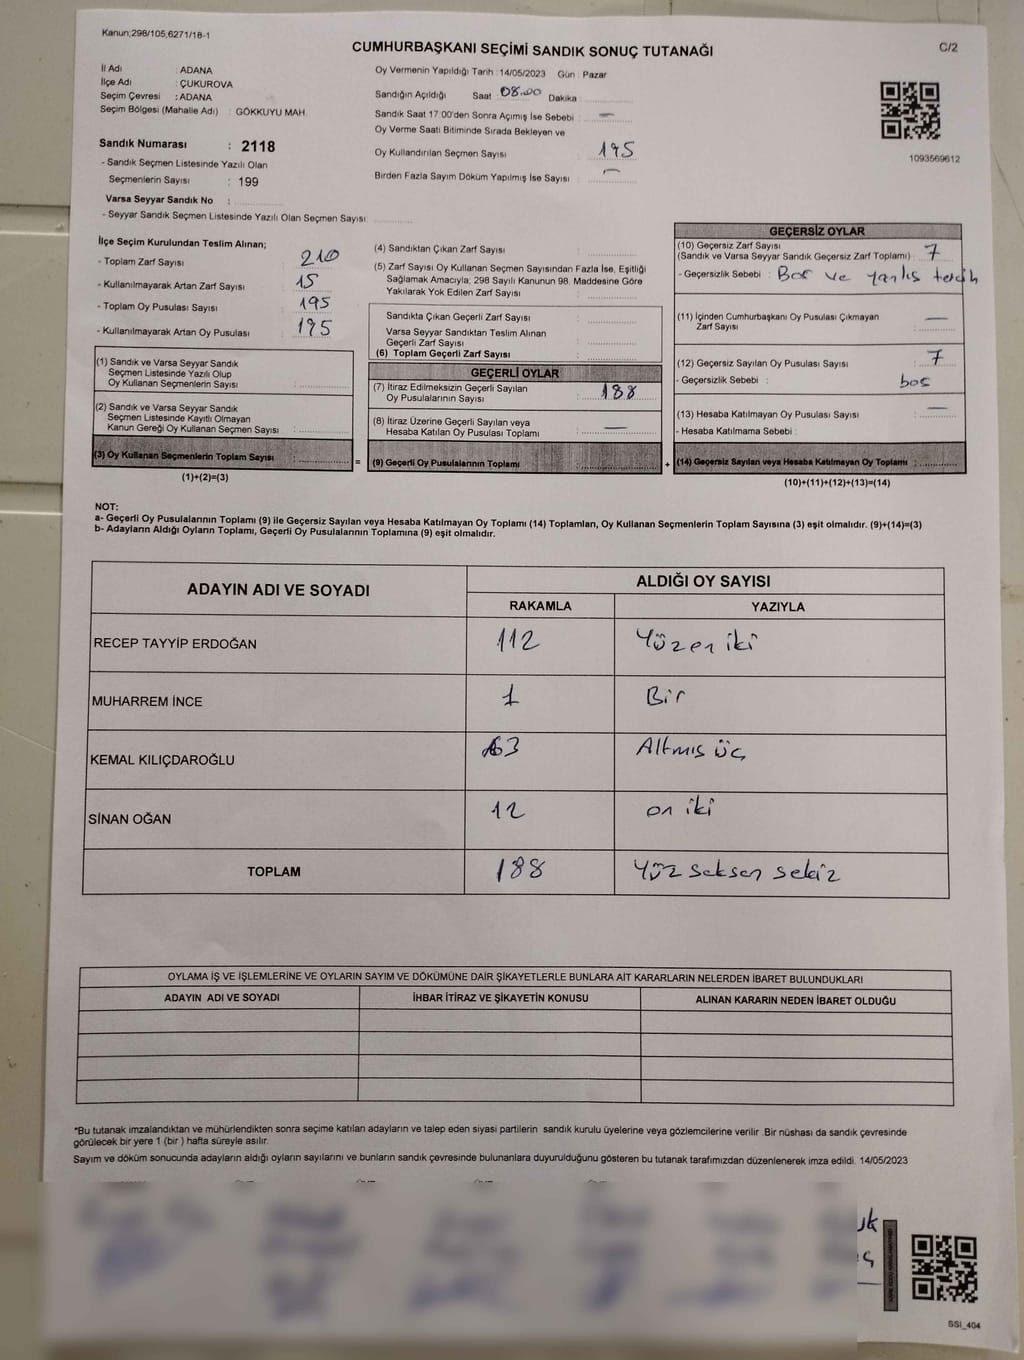 Kanun;298/105,6271/18-1
C/2
CUMHURBAŞKANI SEÇİMİ SANDIK SONUÇ TUTANAĞI
İl Adı : ADANA
İlçe Adı : ÇUKUROVA
Seçim Çevresi : ADANA
Seçim Bölgesi (Mahalle Adı) : GÖKKUYU MAH.
Sandık Numarası : 2118
- Sandık Seçmen Listesinde Yazılı Olan
Seçmenlerin Sayısı : 199
Varsa Seyyar Sandık No :
- Seyyar Sandık Seçmen Listesinde Yazılı Olan Seçmen Sayısı:
Oy Vermenin Yapıldığı Tarih : 14/05/2023 Gün : Pazar
Sandığın Açıldığı Saat : 08.00 Dakika :
Sandık Saat 17:00'den Sonra Açımış İse Sebebi : —
Oy Verme Saati Bitiminde Sırada Bekleyen ve
Oy Kullandırılan Seçmen Sayısı : 195
Birden Fazla Sayım Döküm Yapılmış İse Sayısı : —
1093569612
İlçe Seçim Kurulundan Teslim Alınan;
- Toplam Zarf Sayısı : 210
- Kullanılmayarak Artan Zarf Sayısı : 15
- Toplam Oy Pusulası : 195
- Kullanılmayarak Artan Oy Pusulası : 195
(1) Sandık ve Varsa Seyyar Sandık
Seçmen Listesinde Yazılı Olup
Oy Kullanan Seçmenlerin Sayısı :
(2) Sandık ve Varsa Seyyar Sandık
Seçmen Listesinde Kayıtlı Olmayan
Kanun Gereği Oy Kullanan Seçmen Sayısı :
(3) Oy Kullanan Seçmenlerin Toplam Sayısı :
(1)+(2)=(3)
=
(4) Sandıktan Çıkan Zarf Sayısı :
(5) Zarf Sayısı Oy Kullanan Seçmen Sayısından Fazla İse, Eşitliği
Sağlamak Amacıyla; 298 Sayılı Kanunun 98. Maddesine Göre
Yakılarak Yok Edilen Zarf Sayısı :
Sandıkta Çıkan Geçerli Zarf Sayısı :
Varsa Seyyar Sandıktan Teslim Alınan
Geçerli Zarf Sayısı :
(6) Toplam Geçerli Zarf Sayısı :
GEÇERLİ OYLAR
(7) İtiraz Edilmeksizin Geçerli Sayılan
Oy Pusulalarının Sayısı : 188
(8) İtiraz Üzerine Geçerli Sayılan veya
Hesaba Katılan Oy Pusulası Toplamı : —
(9) Geçerli Oy Pusulalarının Toplamı :
+
GEÇERSİZ OYLAR
(10) Geçersiz Zarf Sayısı
(Sandık ve Varsa Seyyar Sandık Geçersiz Zarf Toplamı) : 7
- Geçersizlik Sebebi : Boş ve yanlış tercih
(11) İçinden Cumhurbaşkanı Oy Pusulası Çıkmayan
Zarf Sayısı : —
(12) Geçersiz Sayılan Oy Pusulası Sayısı : 7
- Geçersizlik Sebebi : boş
(13) Hesaba Katılmayan Oy Pusulası Sayısı : —
- Hesaba Katılmama Sebebi :
(14) Geçersiz Sayılan veya Hesaba Katılmayan Oy Toplamı :
(10)+(11)+(12)+(13)=(14)
NOT:
a- Geçerli Oy Pusulalarının Toplamı (9) ile Geçersiz Sayılan veya Hesaba Katılmayan Oy Toplamı (14) Toplamları, Oy Kullanan Seçmenlerin Toplam Sayısına (3) eşit olmalıdır. (9)+(14)=(3)
b- Adayların Aldığı Oyların Toplamı, Geçerli Oy Pusulalarının Toplamına (9) eşit olmalıdır.
ADAYIN ADI VE SOYADI ALDIĞI OY SAYISI
RAKAMLA YAZIYLA
RECEP TAYYİP ERDOĞAN 112 Yüzon iki
MUHARREM İNCE 1 Bir
KEMAL KILIÇDAROĞLU 63 Altmış üç
SİNAN OĞAN 12 on iki
TOPLAM 188 Yüz seksen sekiz
OYLAMA İŞ VE İŞLEMLERİNE VE OYLARIN SAYIM VE DÖKÜMÜNE DAİR ŞİKAYETLERLE BUNLARA AİT KARARLARIN NELERDEN İBARET BULUNDUKLARI
ADAYIN ADI VE SOYADI İHBAR İTİRAZ VE ŞİKAYETİN KONUSU ALINAN KARARIN NEDEN İBARET OLDUĞU
*Bu tutanak imzalandıktan ve mühürlendikten sonra seçime katılan adayların ve talep eden siyasi partilerin sandık kurulu üyelerine veya gözlemcilerine verilir .Bir nüshası da sandık çevresinde
görülecek bir yere 1 (bir ) hafta süreyle asılır.
Sayım ve döküm sonucunda adayların aldığı oyların sayılarını ve bunların sandık çevresinde bulunanlara duyurulduğunu gösteren bu tutanak tarafımızdan düzenlenerek imza edildi. 14/05/2023
SSI_404